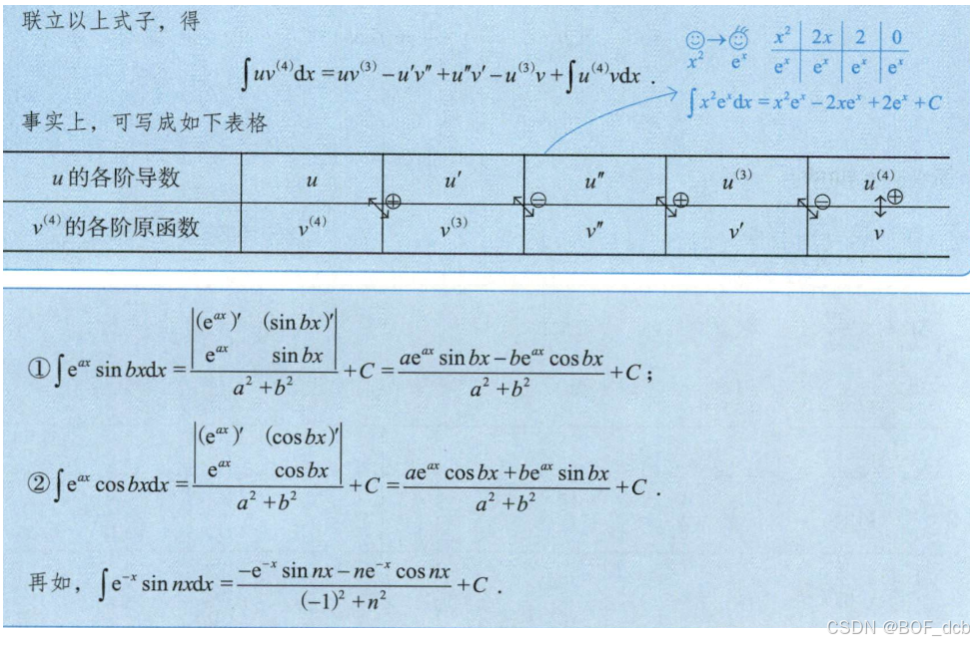 联立以上式子，得
∫uv⁽⁴⁾dx = uv⁽³⁾ − u′v″ + u″v′ − u⁽³⁾v + ∫u⁽⁴⁾vdx .
x² → eˣ
x² | 2x | 2 | 0
eˣ | eˣ | eˣ | eˣ
∫x²eˣdx = x²eˣ − 2xeˣ + 2eˣ + C
事实上，可写成如下表格
u 的各阶导数 | u | u′ | u″ | u⁽³⁾ | u⁽⁴⁾
⊕ ⊖ ⊕ ⊖ ⊕
v⁽⁴⁾ 的各阶原函数 | v⁽⁴⁾ | v⁽³⁾ | v″ | v′ | v
① ∫eᵃˣ sin bxdx = |(eᵃˣ)′ (sin bx)′; eᵃˣ sin bx| / (a² + b²) + C = (aeᵃˣ sin bx − beᵃˣ cos bx) / (a² + b²) + C ;
② ∫eᵃˣ cos bxdx = |(eᵃˣ)′ (cos bx)′; eᵃˣ cos bx| / (a² + b²) + C = (aeᵃˣ cos bx + beᵃˣ sin bx) / (a² + b²) + C .
再如，∫e⁻ˣ sin nxdx = (−e⁻ˣ sin nx − ne⁻ˣ cos nx) / ((−1)² + n²) + C .
CSDN @BOF_dcb